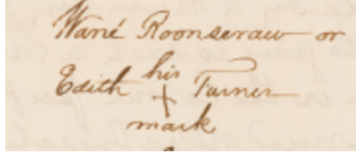 Wané Roonseraw or
Edith his Turner
+
mark